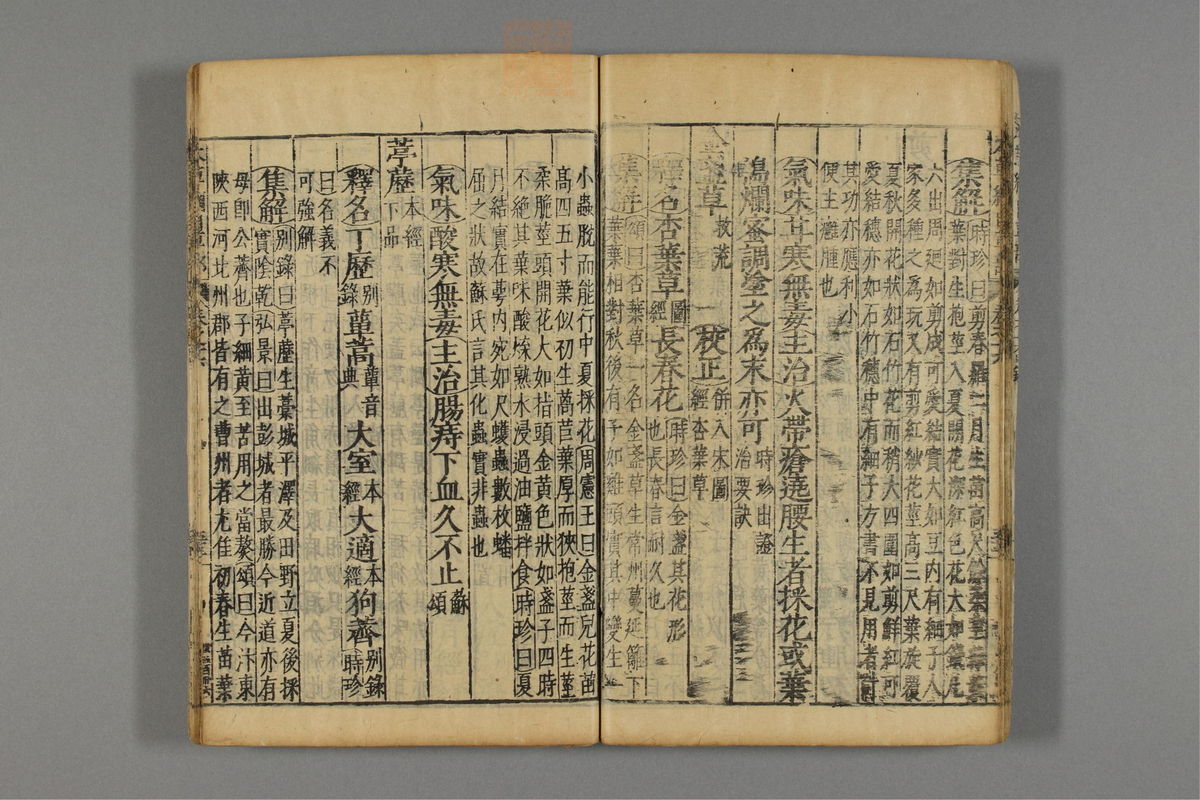 集解時珍曰剪春羅二月生苗高尺
葉對生抱莖入夏開花深紅色花大如錢凡
六出周廻如剪成可愛結實大如豆內有細子人
家多種之爲玩又有剪紅紗花莖高三尺葉旋覆
夏秋開花狀如石竹花而稍大四圍如剪鮮紅可
愛結穗亦如石竹穗中有細子方書不見用者計
其功亦應利小
便主癰腫也
氣味甘寒無毒主治火帶瘡遶腰生者採花或葉
搗爛蜜調塗之爲末亦可時珍出證
治要訣
金盞草救荒
校正併入宋圖
經杏葉草
釋名杏葉草圖經長春花時珍曰金盞其花形
也長春言耐久也
集解頌曰杏葉草一名金盞草生常州蔓延籬下
葉葉相對秋後有子如雞頭實其中變生一
小蟲脫而能行中夏採花周憲王曰金盞兒花苗
高四五寸葉似初生萵苣葉厚而狹抱莖而生莖
柔脆莖頭開花大如指頭金黃色狀如盞子四時
不絕其葉味酸煠熟水浸過油鹽拌食時珍曰夏
月結實在萼內宛如尺蠖蟲數枚蟠
屈之狀故蘇氏言其化蟲實非蟲也
氣味酸寒無毒主治腸痔下血久不止蘇頌
葶藶本經下品
釋名丁歷別錄蕇蒿蕇音典大室本經大適本經狗薺別錄時珍
曰名義不
可強解
集解別錄曰葶藶生藁城平澤及田野立夏後採
實陰乾弘景曰出彭城者最勝今近道亦有
母卽公薺也子細黃至苦用之當熬頌曰今汴東
陝西河北州郡皆有之曹州者尤佳初春生苗葉